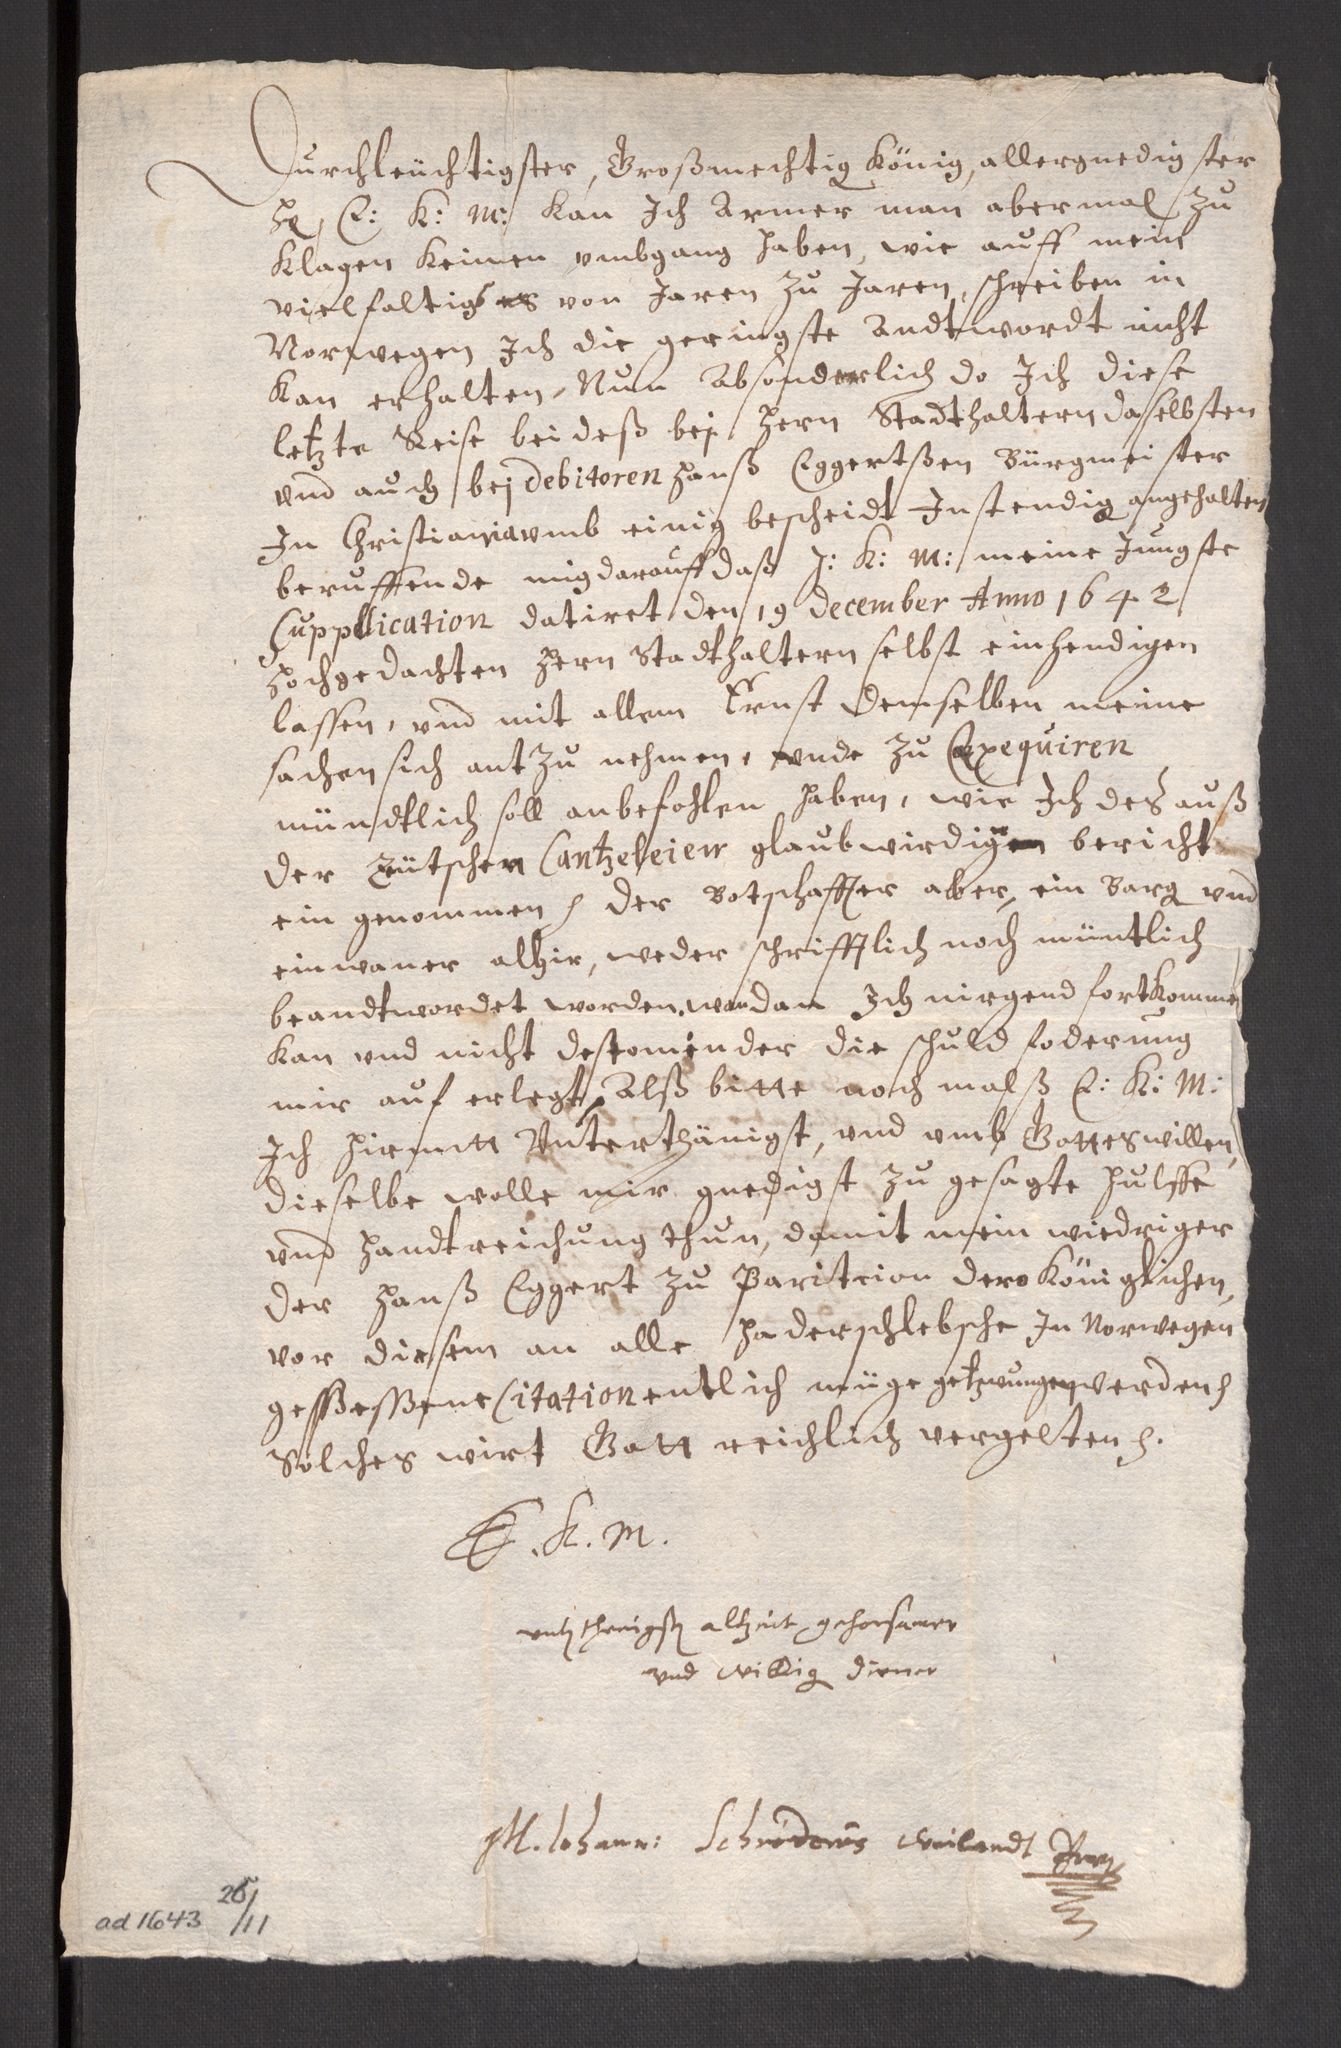 Durchleüchtigster, Großmechtig König, allergnedigster
Hr, E: K: M: Kan Ich Armer man abermal zu
klagen keinen vmbgang haben, wie auff mein
vielfaltigs von Jaren zu Jaren, schreiben in
Norwegen Ich die geringste Andtwordt nicht
kan erhalten, Nun Absonderlich do Ich diese
letzte Reise beideß bej Hern Stadthaltern daselbsten
vnd auch bej Debitoren Hanß Eggertßen Bürgmeister
In Christiania vmb einig bescheidt Instendig angehalten
beruffende mig darauff daß I: K: M: meine Jungste
Supplication datiret den 19 December Anno 1642
Hochgedachten Hern Stadthaltern selbst einhendigen
lassen, vnd mit allem Ernst demselben meine
sachen sich antzunehmen, vnde zu Exequiren
mündtlich soll anbefohlen haben, wie Ich des auß
der Teütschen Cantzeleien glaubwirdigen bericht
ein genommen, der Botschaffter aber, ein Barg vnd
einwaner alhir, weder schrifftlich noch müntlich
beandtwordet worden, wan dan Ich nirgend fortkommen
kan vnd nicht destominder die schuld foderung
mir auf erlegt, Alß bitte noch malß E: K: M:
Ich hiemitt Vnterthänigst, vnd vmb Gottes willen,
dieselbe wolle mir gnedigst zu gesagte hulffe
vnd handtreichung thun, damit mein wiedriger
der Hanß Eggert zu Parition dero Königlichen,
vor diesem an alle Haderschlebsche In Norwegen
geßeßene Citation entlich müge getzwungen werden,
Solches wirt Gott reichlich vergelten.
E. K. M.
vnterthenigster altzeit gehorsamer
vnd willig diener
M. Johann: Schröderus weilandt
ad 1643 26/11